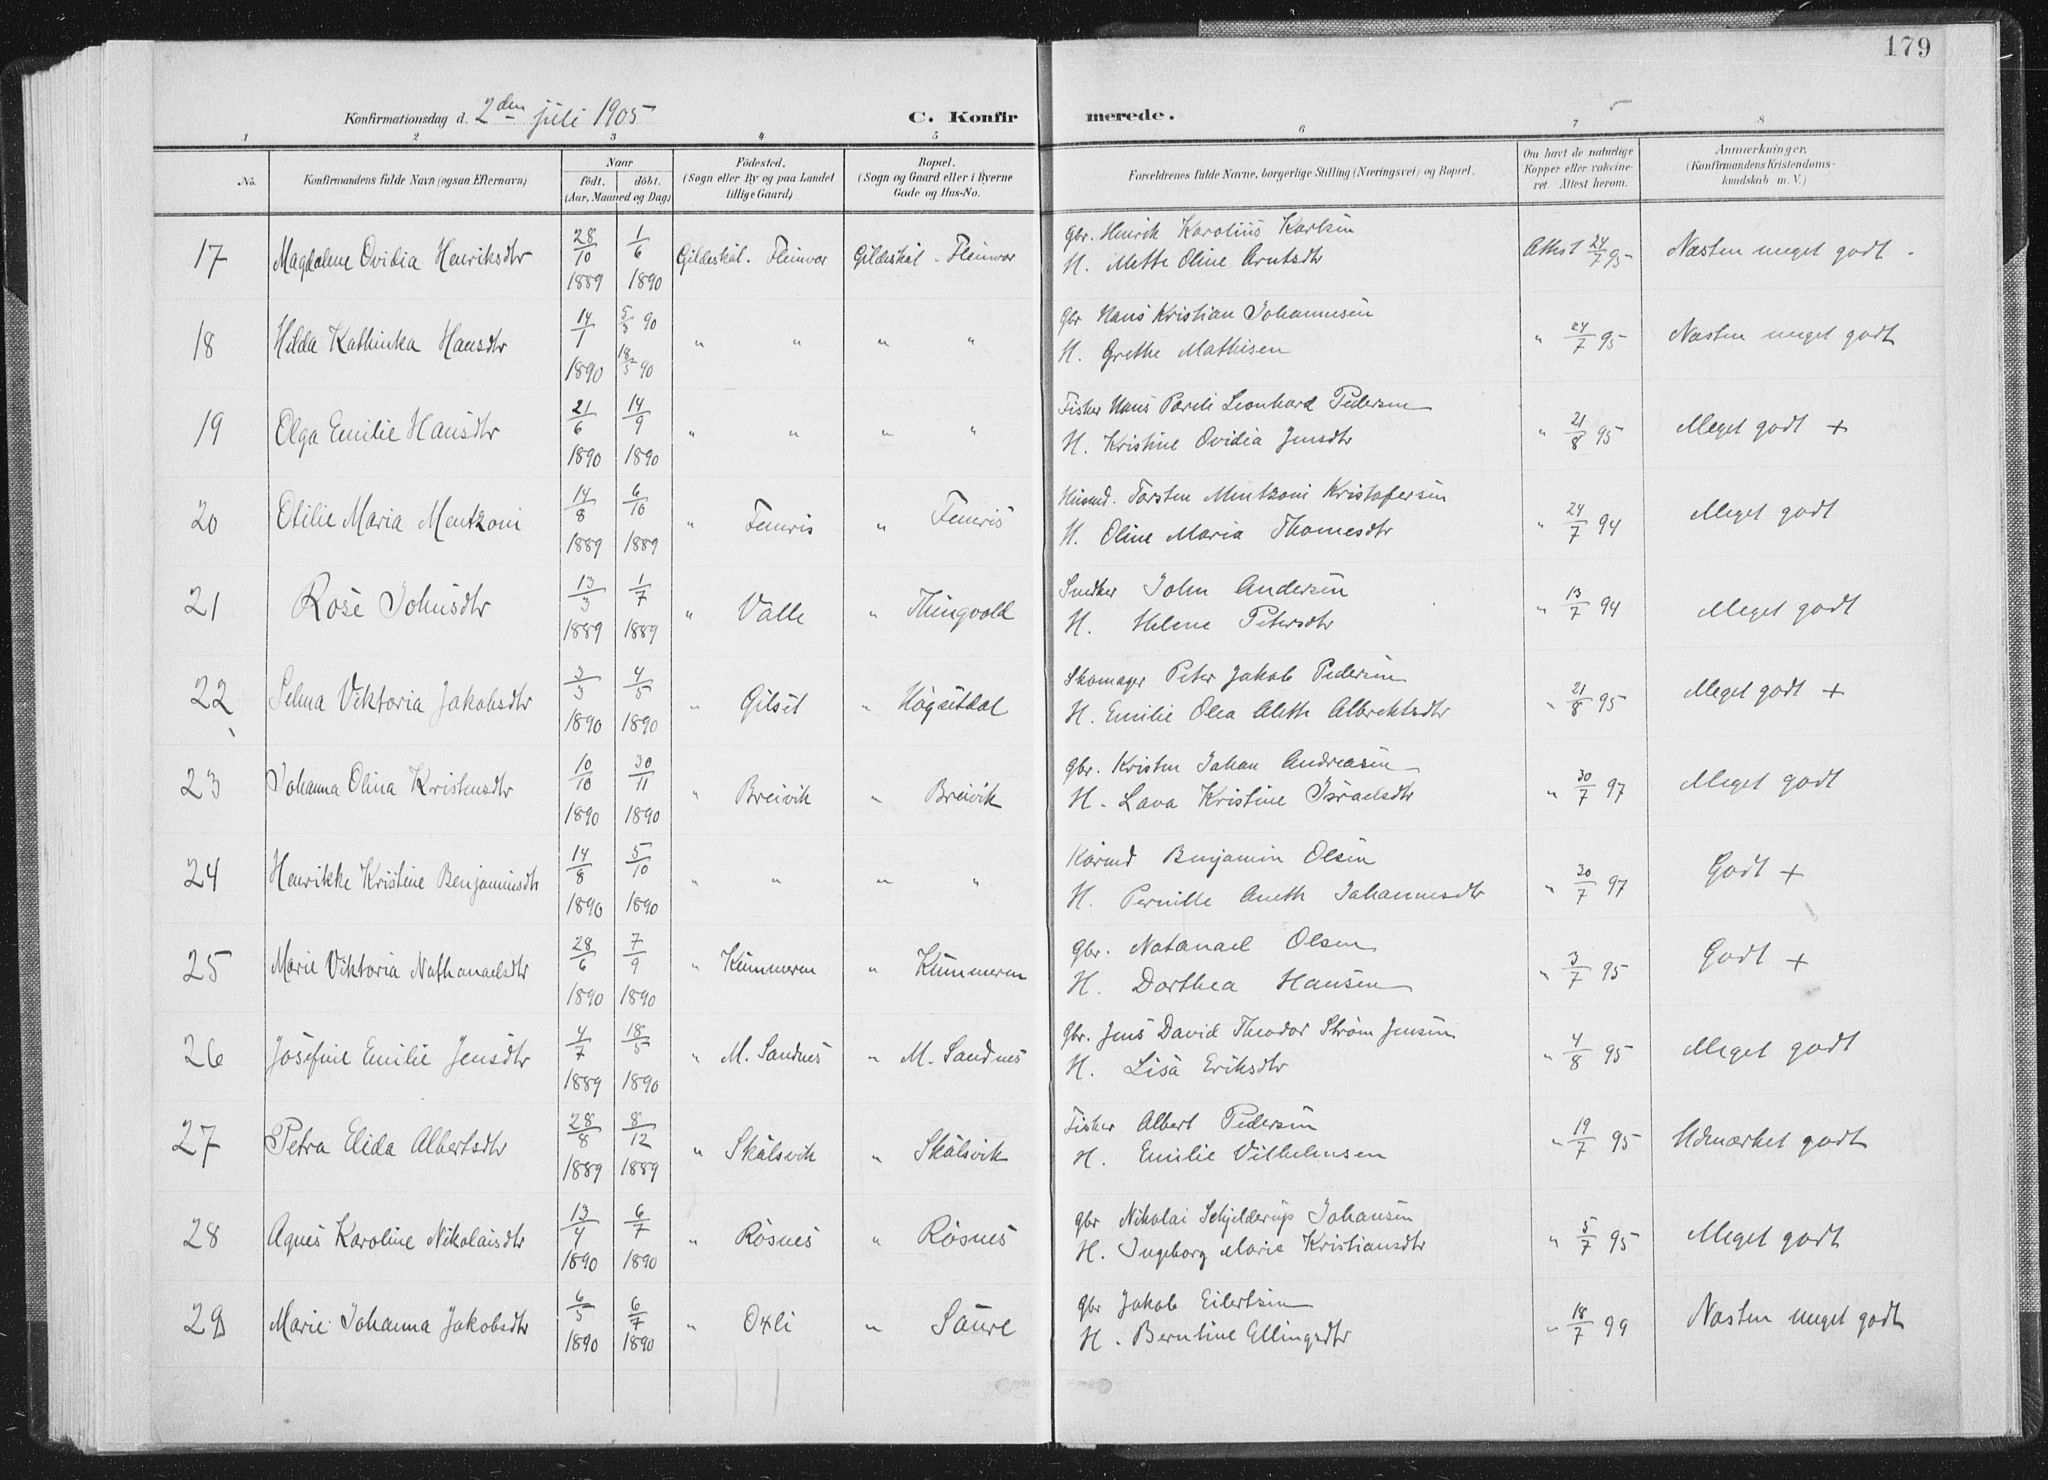 179
Konfirmationsdag d. 2den juli 1905
C. Konfirmerede.
1 2 3 4 5 6 7 8
No. Konfirmandens fulde Navn (ogsaa Efternavn) Naar födt. döbt. (Aar, Maaned og Dag) Födested. (Sogn eller By og paa Landet tillige Gaard) Bopæl. (Sogn og Gaard eller i Byerne Gade og Hus-No. Forældrenes fulde Navne, borgerlige Stilling (Næringsvei) og Bopæl. Om havt de naturlige Kopper eller vakcineret. Attest herom. Anmærkninger. (Konfirmandens Kristendomskundskab m. V.)
17 Magdalene Ovidia Henriksdtr 28/10 1889 1/6 1890 Gildeskål. Fleinvær Gildeskål. Fleinvær Gbr. Henrik Karolius Karlsen
H. Mette Oline Arntsdtr Attest 24/7 95 Næsten meget godt.
18 Hilda Kathinka Hansdtr 14/1 1890 5/3 90 18/5 90 " " " " Gbr Hans Kristian Johannesen
H. Grethe Mathisen " 24/7 95 Næsten meget godt
19 Olga Emilie Hansdtr 21/6 1890 14/9 1890 " " " " Fisker Hans Pareli Leonhard Pedersen
H. Kristine Ovidia Jensdtr " 21/8 95 Meget godt +
20 Otilie Maria Mentzoni 14/8 1889 6/10 1889 " Femris " Femris Husmd. Torsten Mentzoni Kristofersen
H. Oline Maria Thomesdtr " 24/7 94 Meget godt
21 Rose Johnsdtr 13/3 1889 1/7 1889 " Valle " Thingvold Snedker John Andersen
H. Helene Petersdtr " 13/7 94 Meget godt
22 Selma Viktoria Jakobsdtr 3/3 1890 4/5 1890 " Gilset " Høgsetdal Skomager Peter Jakob Pedersen
H. Emilie Olea Aleth Albrektsdtr " 21/8 95 Meget godt +
23 Johanna Olina Kristensdtr 10/10 1890 30/11 1890 " Breivik " Breivik Gbr. Kristen Johan Andreasen
H. Lava Kristine Israelsdtr " 30/7 97 Meget godt
24 Henrikke Kristine Benjaminsdtr 14/8 1890 5/10 1890 " " " " Kårmd Benjamin Olsen
H. Pernille Aneth Johannesdtr " 30/7 97 Godt +
25 Marie Viktoria Nathanaelsdtr 28/6 1890 7/9 1890 " Kummeren " Kummeren Gbr. Natanael Olsen
H. Dorthea Hansen " 3/7 95 Godt +
26 Josefine Emilie Jensdtr 4/7 1889 18/5 1890 " M. Sandnes " M. Sandnes Gbr. Jens David Theodor Strøm Jensen
H. Lisa Eriksdtr " 4/8 95 Meget godt
27 Petra Elida Albertsdtr 28/8 1889 8/12 1889 " Skålsvik " Skålsvik Fisker Albert Pedersen
H. Emilie Vilhelmsen " 19/7 95 Udmærket godt
28 Agnes Karoline Nikolaisdtr 13/4 1890 6/7 1890 " Røsnes " Røsnes Gbr Nikolai Schjelderup Johansen
H. Ingeborg Marie Kristiansdtr " 5/7 95 Meget godt
29 Marie Johanna Jakobsdtr 6/5 1890 6/7 1890 " Oxli " Saure Gbr Jakob Eilertsen
H. Berntine Ellingsdtr " 18/7 99 Næsten meget godt